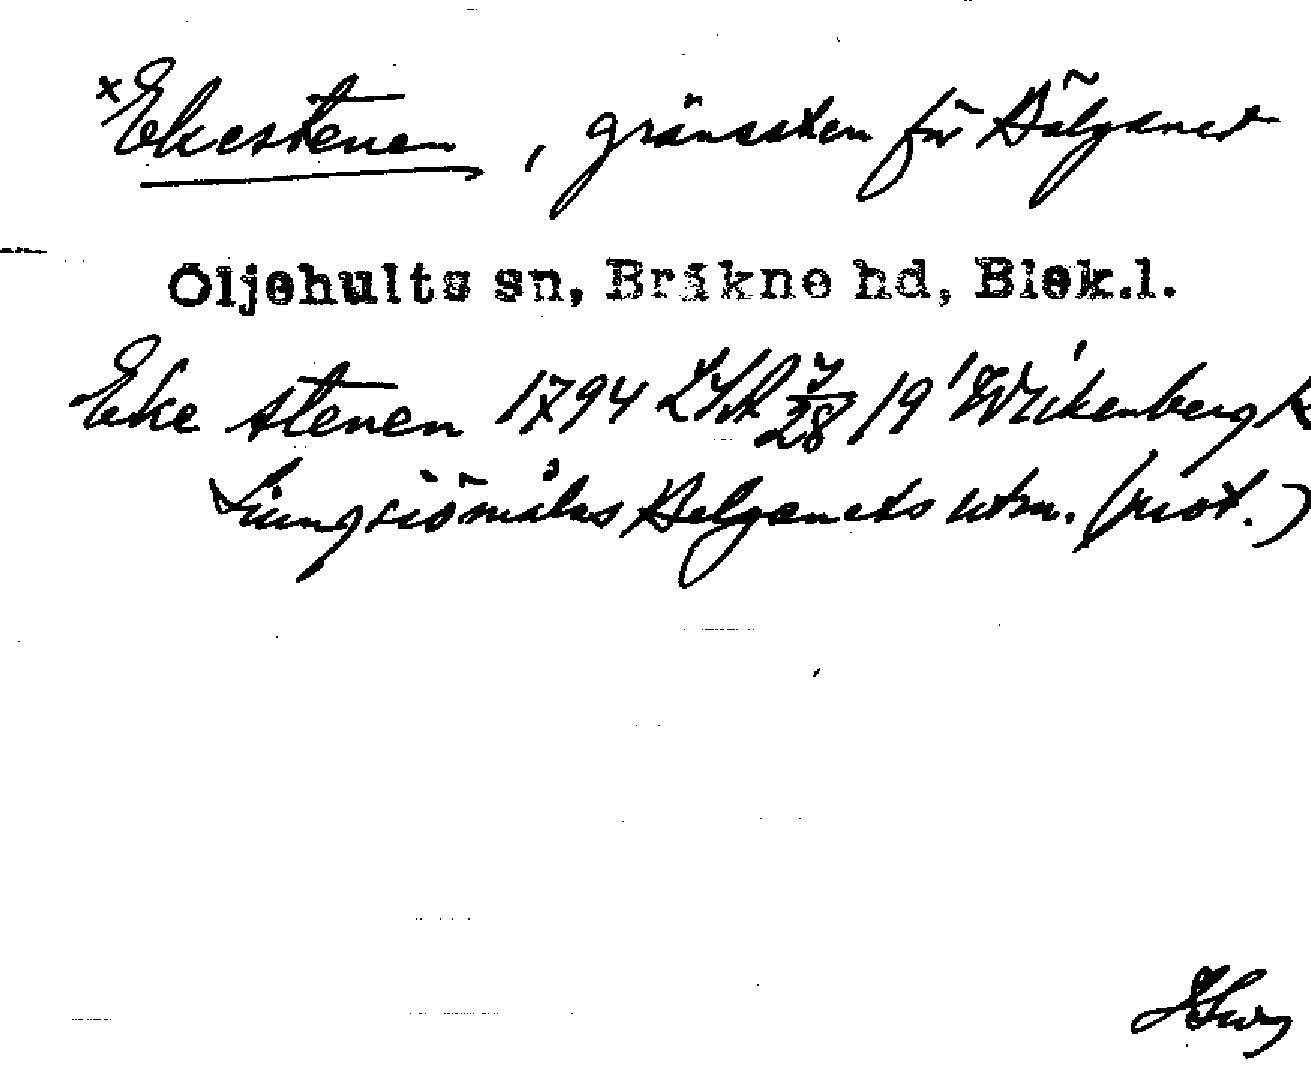 ×Ekestenen, gränssten för Bälganet
Oljehults sn, Bräkne hd, Blek.l.
Eke stenen 1794 LSA 7/28 19 Wickenberg k
Liungsiömålas Belganets utm. (prot.)